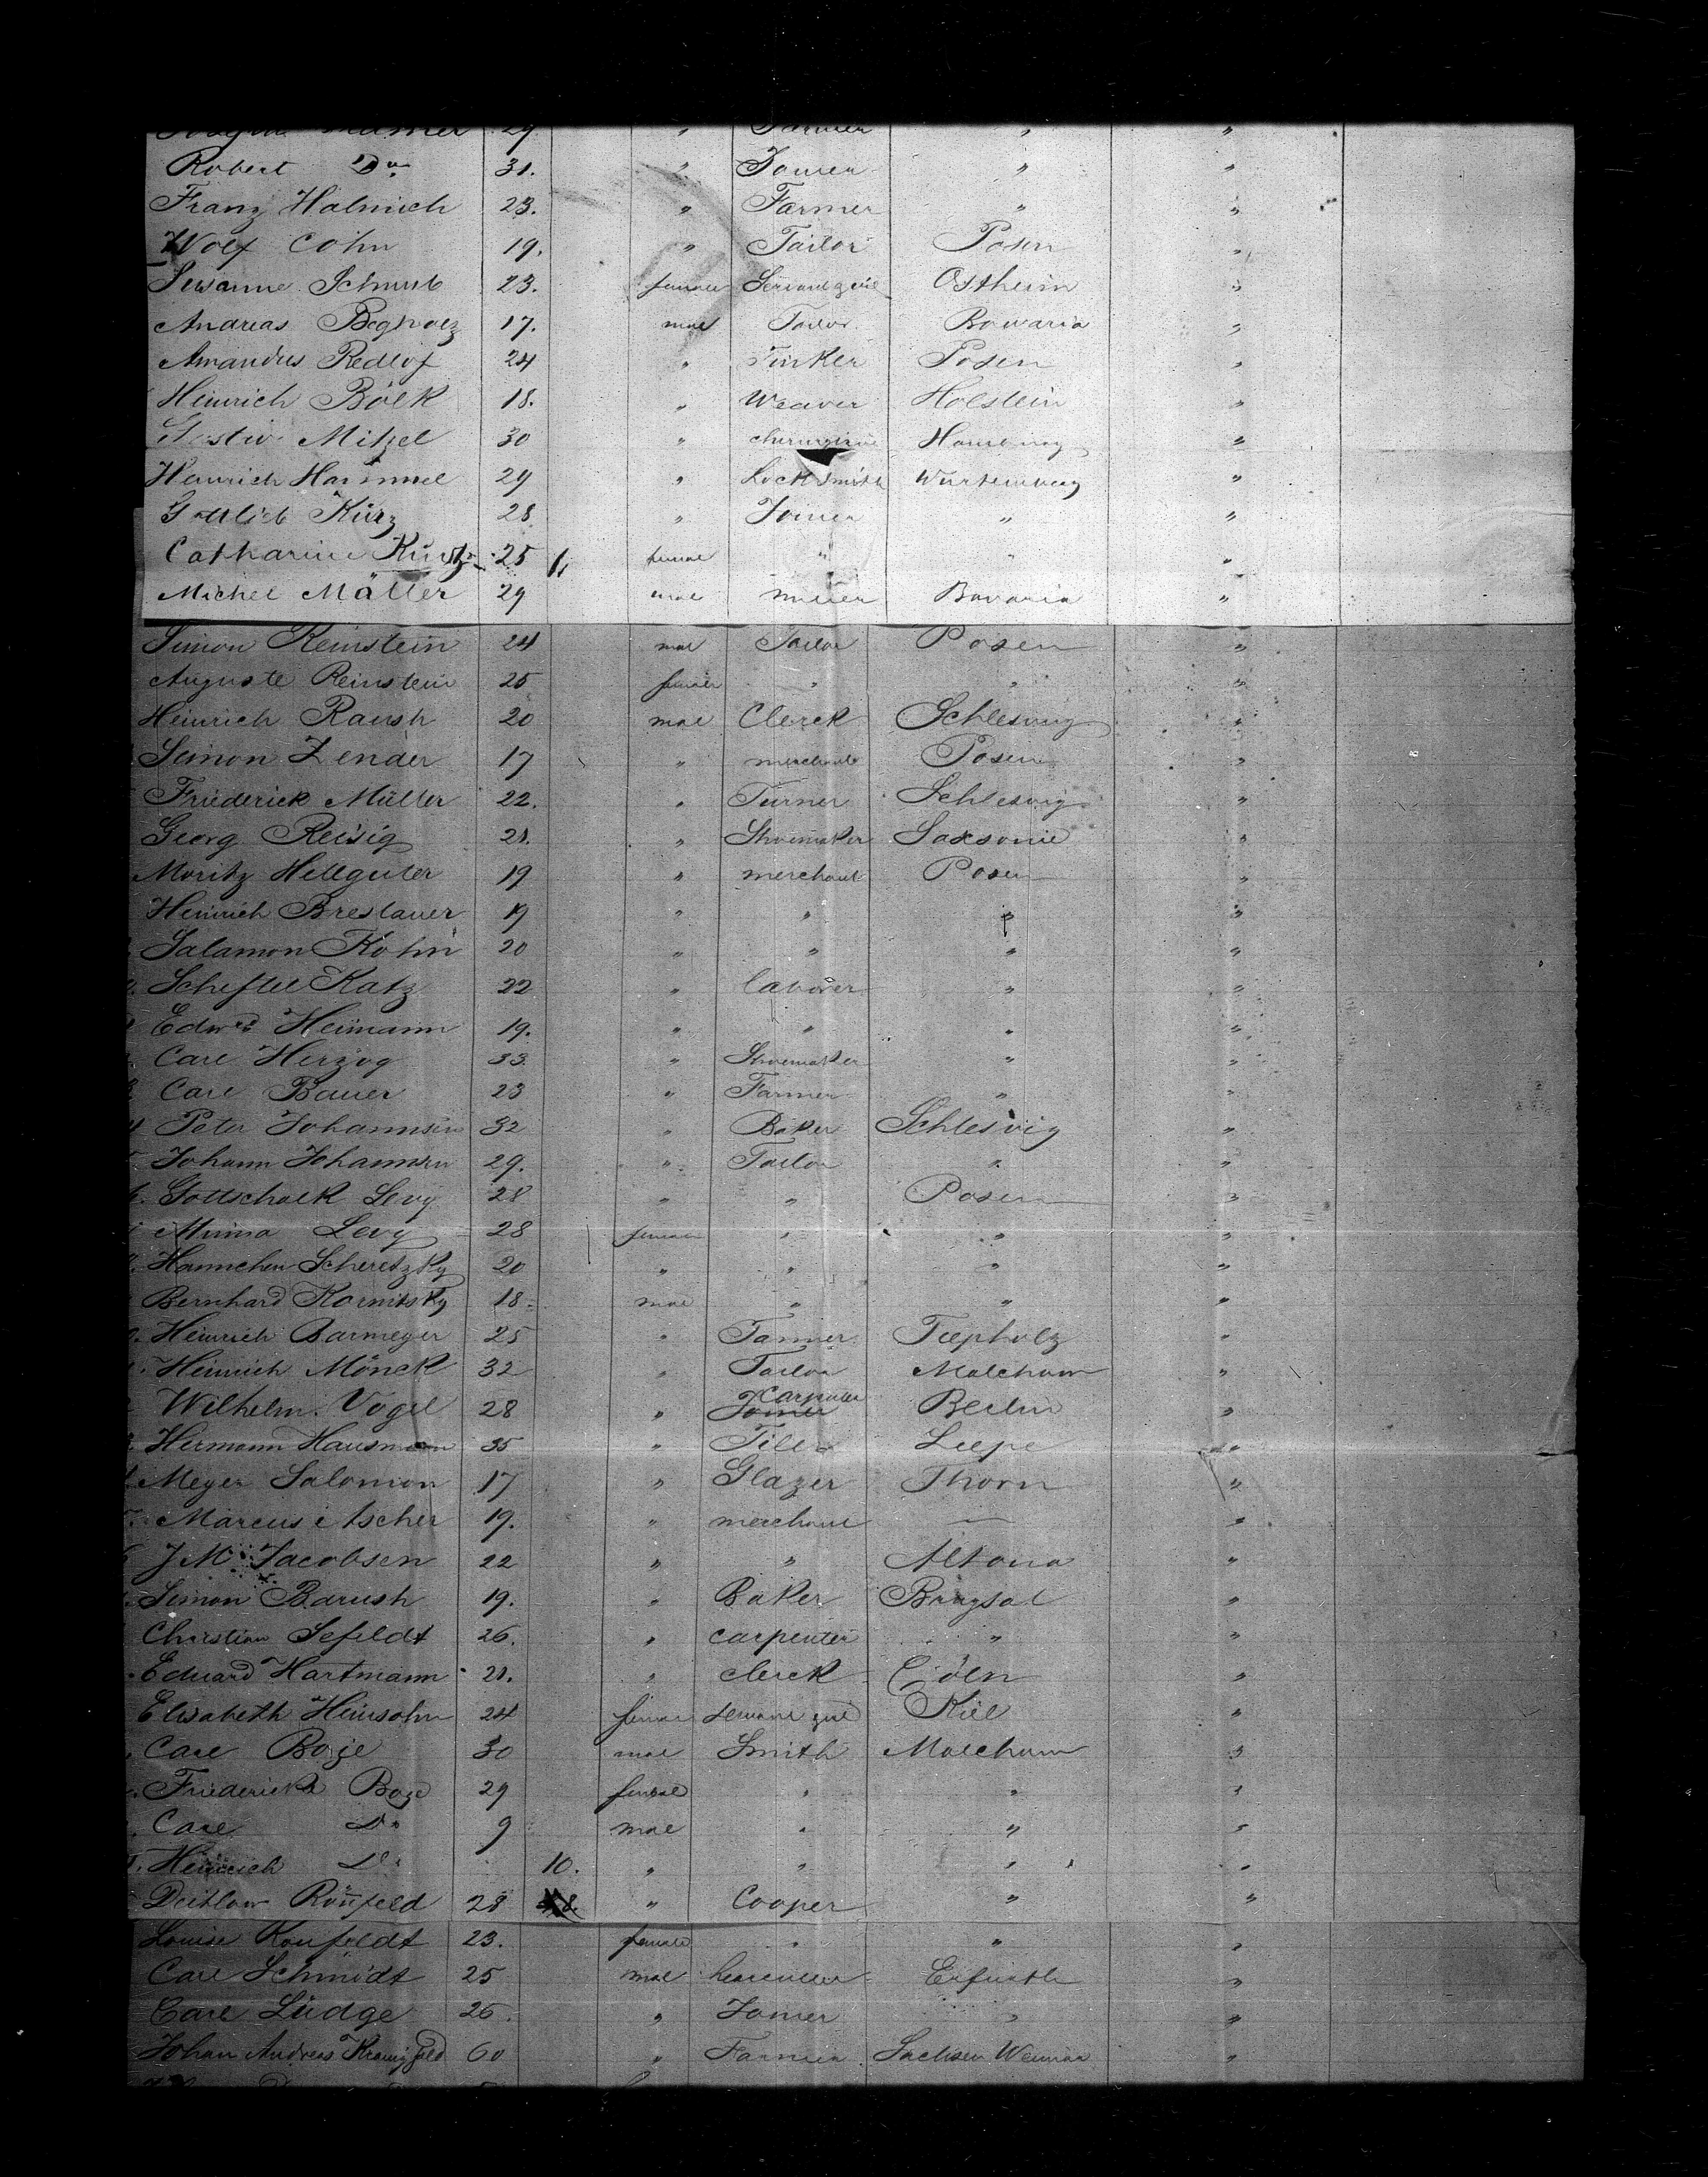 29. " Farmer " "
Robert Do 31. " Joiner " "
Franz Halmich 23. " Farmer " "
Wolf Cohn 19. " Tailor Posen "
Susanne Schmub 23. female Servantgirl Ostheim "
Andreas 17. mal Tailor Bawaria "
Amandus Redlof 24 " Tinker Posen "
Heinrich Bölk 18. " Weaver Holstein "
Gustav Mitzel 30 " Hamburg "
Heinrich Hammel 29 " Locksmith Würtemberg "
Gottlieb Kürz 28 " Joiner " "
Catharine Kürtz 25 female " " "
Michel Mäller 29 mal miller Bavaria "
Simon Reinstein 24 mal Tailor Posen "
Auguste Reinstein 25 female " " "
Heinrich Raush 20 mal Clerck Schleswig "
Simon Zender 17 " merchant Posen "
Friederick Müller 22. " Turner Schleswig "
Georg Reisig 21. " Shoemaker Saxsonie "
Moritz Hellguter 19 " merchant Posen "
Heinrich Breslauer 19 " " " "
Salamon Kohn 20 " " " "
Scheftel Katz 22 " laborer " "
Edwd Heimann 19. " " " "
Carl Herzog 33. " Shoemaker " "
Carl Bauer 23 " Farmer " "
Peter Johannsen 32 " Baker Schlesvig "
Johann Johannsen 29. " Tailor " "
Gottschalk Levy 28 " " Posen "
Minna Levy 28 female " " "
Hannchen Scheretzky 20 " " " "
Bernhard Kornitsky 18 mal " " "
Heinrich Barmeyer 25 " Tanner Tiepholz "
Heinrich Mönck 32 " Tailor Malchow "
Wilhelm Vogel 28 " Joiner Carpenter Berlin "
Hermann Hausmann 35 " Tiler Liepe "
Meyer Salomon 17 " Glazer Thorn "
Marcus Ascher 19. " merchant — "
J M Jacobsen 22 " " Altona "
Simon Barush 19. " Baker Brugsal "
Christian Sefeldt 26. " carpenter " "
Eduard Hartmann 21. " clerck Cöln "
Elisabeth Heinsohn 24 female servant girl Kiel "
Carl Boze 30 mal Smith Malchow "
Friedericke Boze 29 female " " "
Carl Do 9 mal " " "
Heinrich Do 10. " " " "
Deitlow Rönfeld 28 " Cooper " "
Louise Ronfeldt 23. female " " "
Carl Schmidt 25 mal Erfurth "
Carl Lüdge 26. " Joiner " "
Johan Andreas 60 " Farmer Sachsen Weimar "